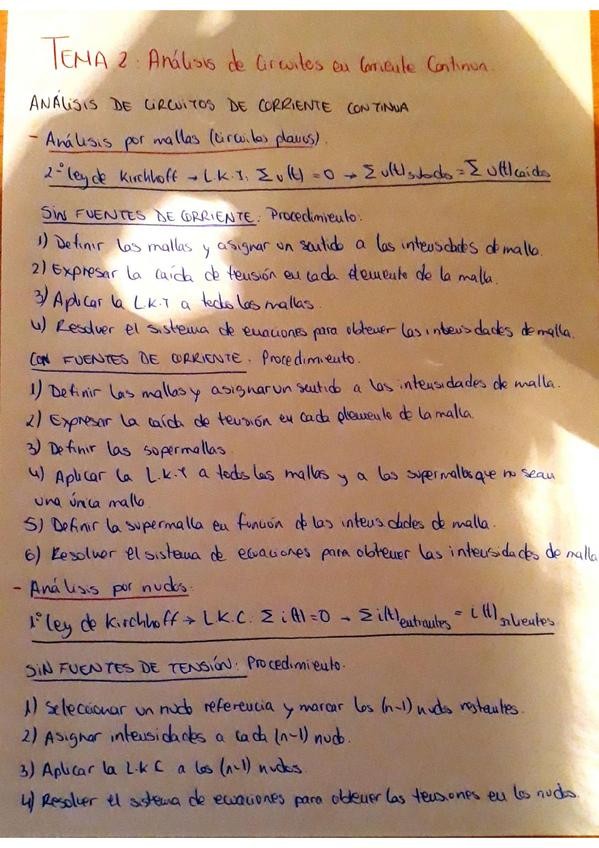 TEMA 2: Análisis de Circuitos en Corriente Continua.
ANÁLISIS DE CIRCUITOS DE CORRIENTE CONTINUA
- Análisis por mallas (circuitos planos).
2º Ley de Kirchhoff → L.K.T: Σ v(t) = 0 → Σ v(t) subida = Σ v(t) caída
SIN FUENTES DE CORRIENTE: Procedimiento:
1) Definir las mallas y asignar un sentido a las intensidades de malla.
2) Expresar la caída de tensión en cada elemento de la malla.
3) Aplicar la L.K.T a todas las mallas.
4) Resolver el sistema de ecuaciones para obtener las intensidades de malla.
CON FUENTES DE CORRIENTE. Procedimiento.
1) Definir las mallas y asignar un sentido a las intensidades de malla.
2) Expresar la caída de tensión en cada elemento de la malla.
3) Definir las supermallas
4) Aplicar la L.K.T a todas las mallas y a las supermallas que no sean
una única malla.
5) Definir la supermalla en función de las intensidades de malla.
6) Resolver el sistema de ecuaciones para obtener las intensidades de malla
- Análisis por nudos:
1º Ley de Kirchhoff → L.K.C. Σ i(t) = 0 → Σ i(t) entrantes = i(t) salientes.
SIN FUENTES DE TENSIÓN: Procedimiento.
1) Seleccionar un nudo referencia y marcar los (n-1) nudos restantes.
2) Asignar intensidades a cada (n-1) nudo.
3) Aplicar la L.K C a los (n-1) nudos.
4) Resolver el sistema de ecuaciones para obtener las tensiones en los nudos.